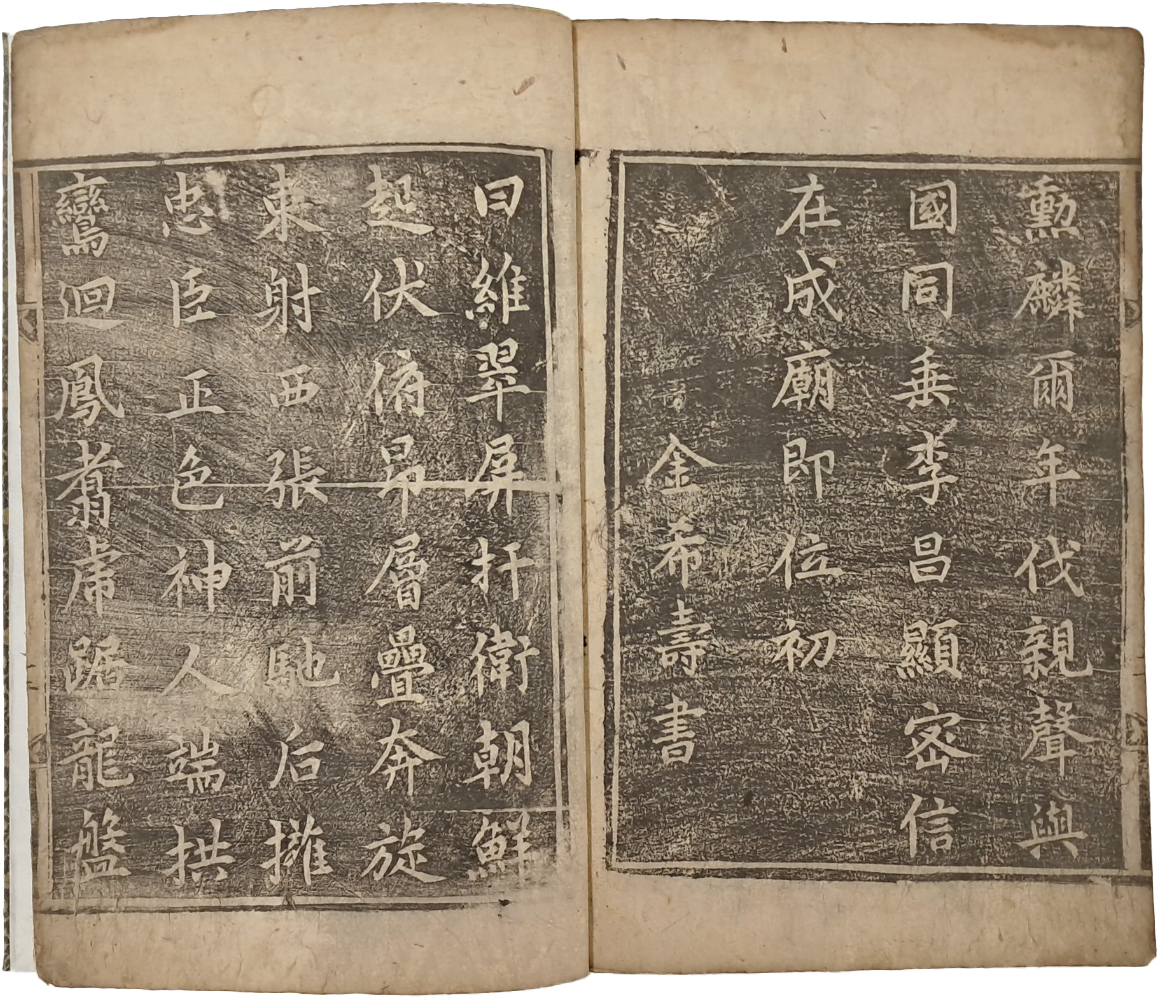 勳麟爾年伐親聲與
國同垂李昌顯密信
在成廟即位初
金希壽書
曰維翠屏扞衛朝鮮
起伏俯昂層疊奔旋
東射西張前馳后擁
忠臣正色神人端拱
鸞迴鳳翥虎踞龍盤